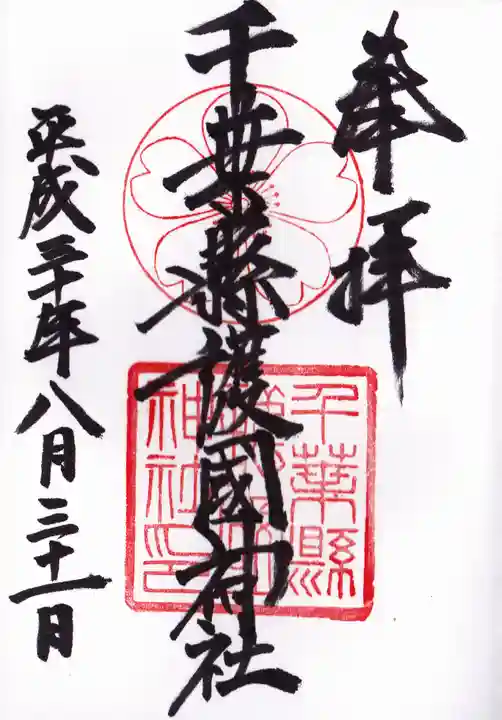 奉拝
千葉縣護國神社
千葉縣
護國
神社印
平成三十年八月三十一日